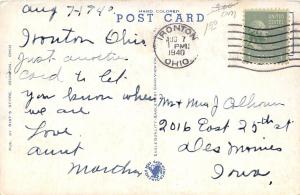 HAND COLORED
Aug 7-1940
POST CARD
Ironton Ohio
Just another
card to let
you know where
we are
Love.
aunt
Martha
IRONTON
AUG 7
1 PM
1940
OHIO
Mr + Mrs J Calhoun
2016 East 25th st
Des Moines
Iowa